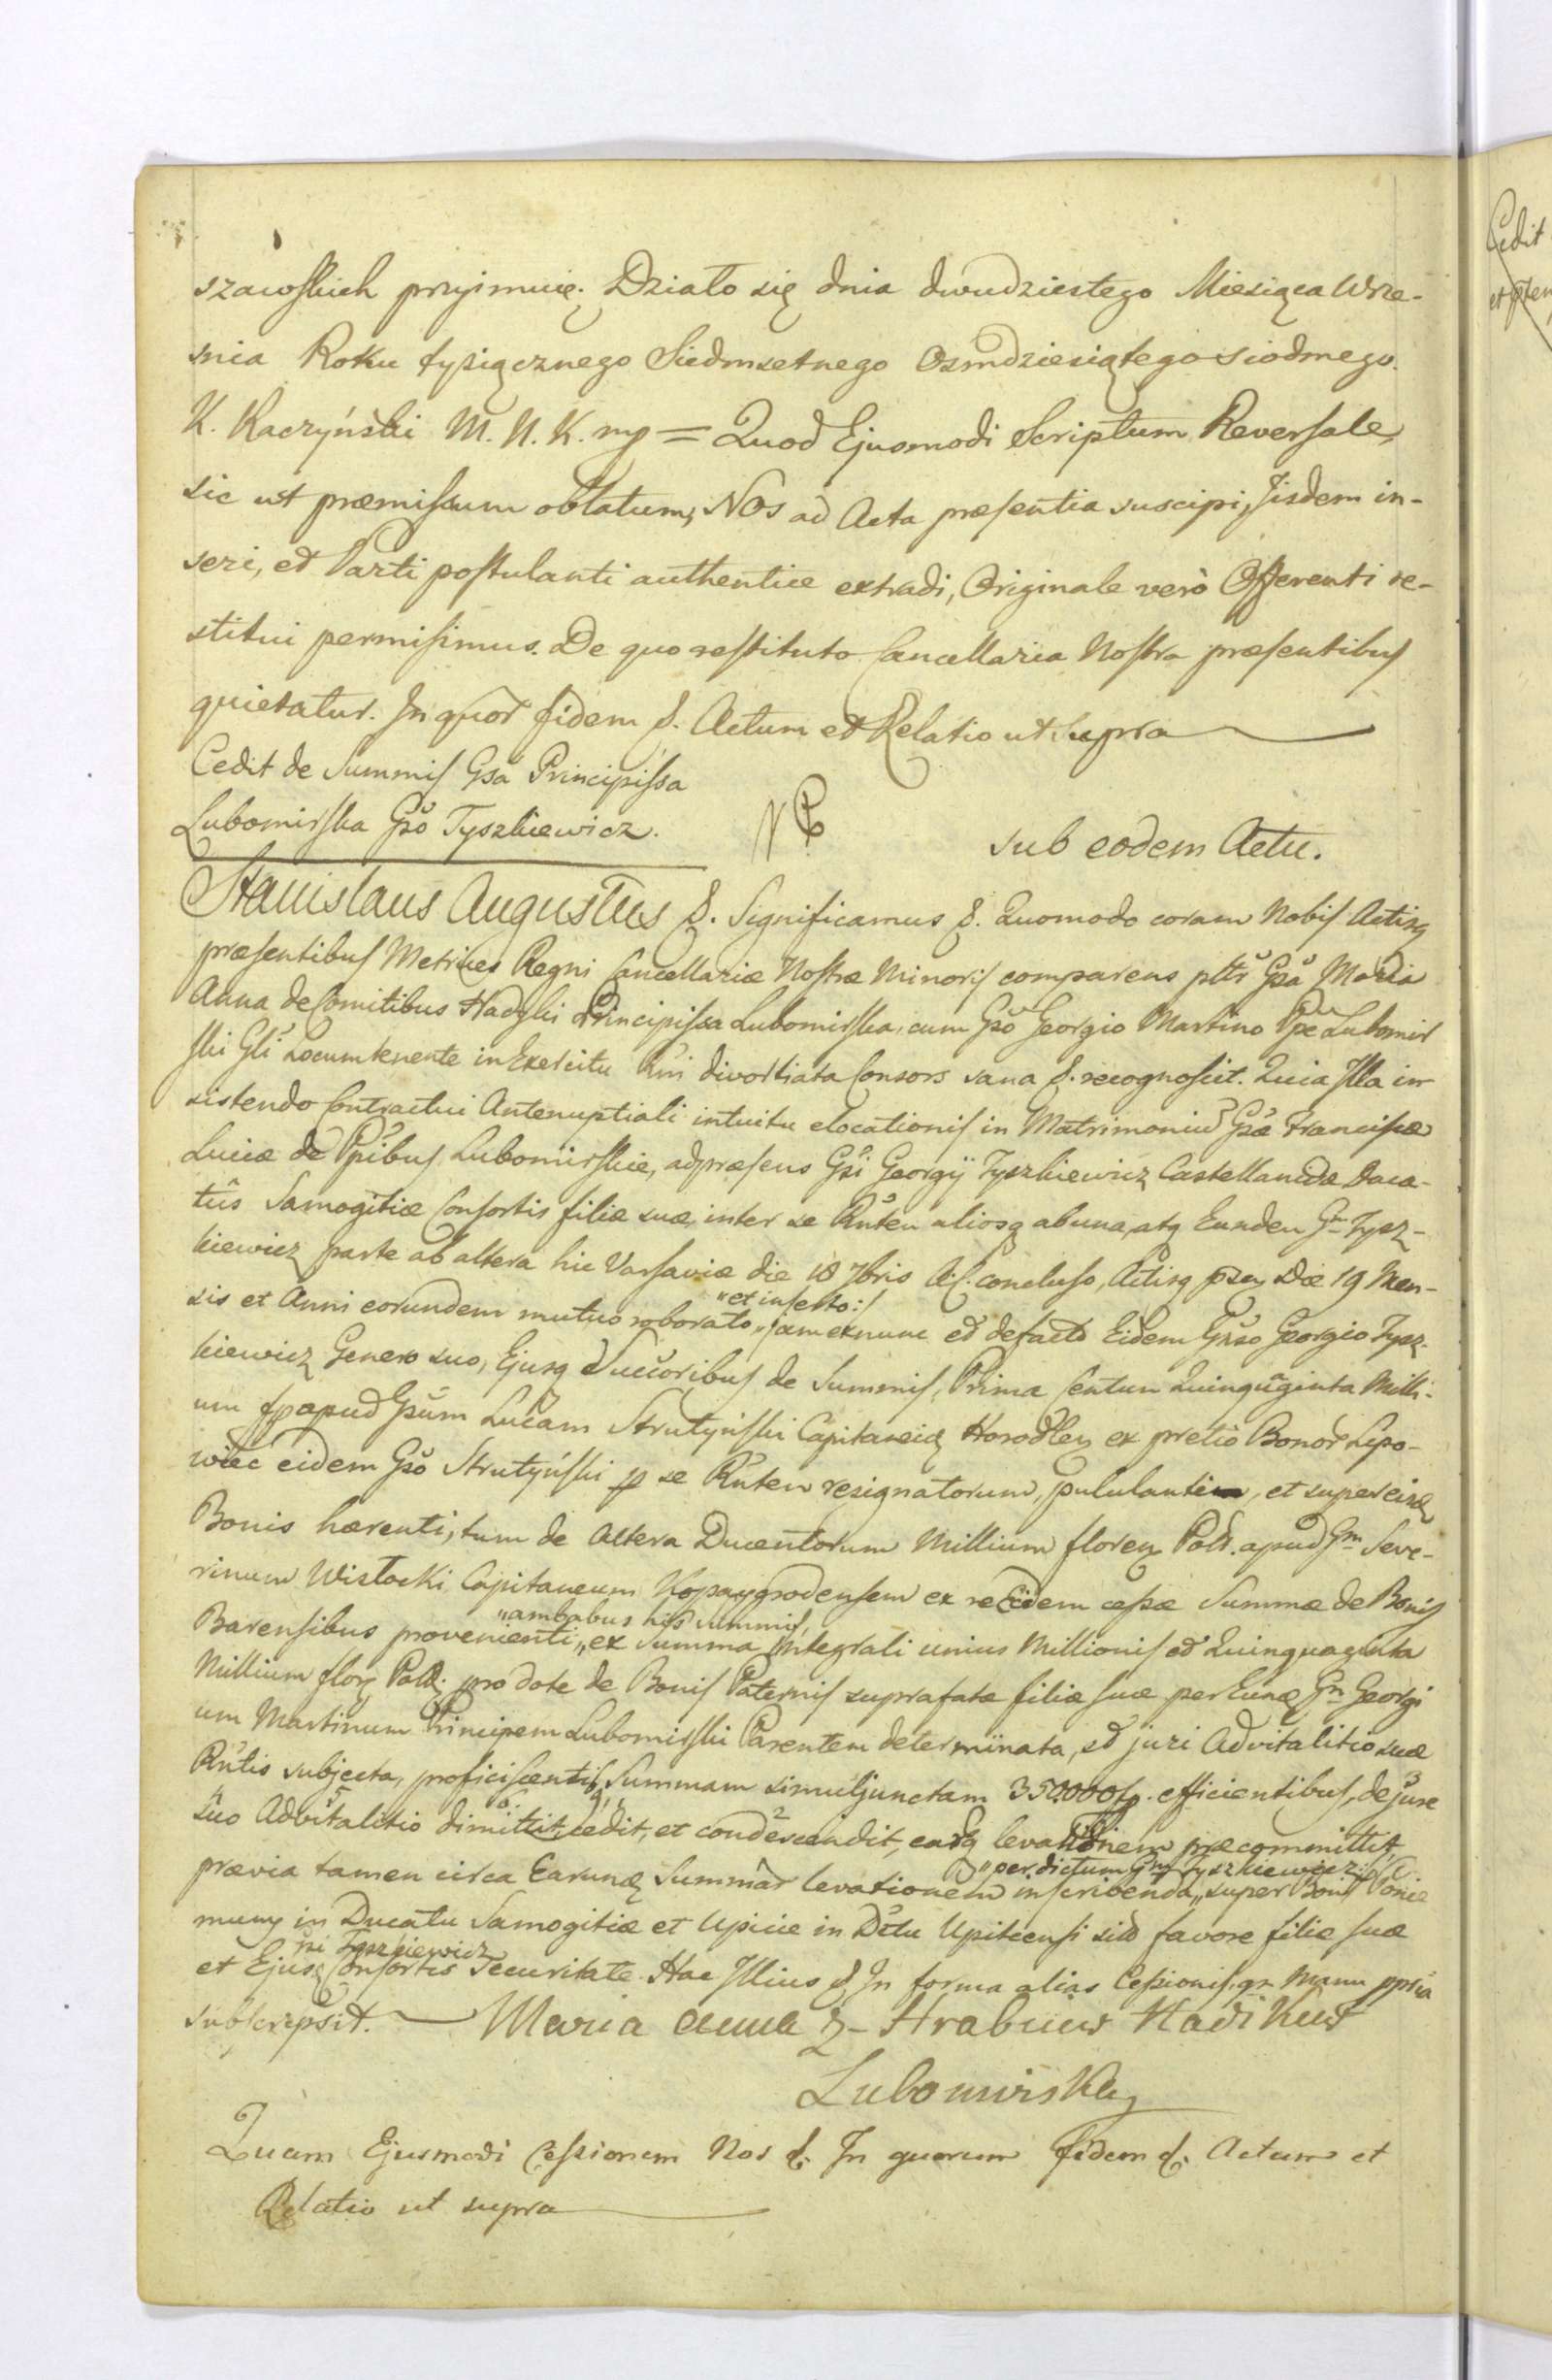 szawskich przyimuię. Działo się dnia dwudziestego Miesiąca Wrze-
snia Roku tysiącznego Siedmsetnego Osmdziesiątego siodmego.
K. Kaczyński M. N. K. mp = Quod Ejusmodi Scriptum Reversale,
sic ut præmissum oblatum, Nos ad Acta præsentia suscipi, Jisdem in-
seri, et Parti postulanti authentice extradi, Originale verò Offerenti re-
stitui permisimus. De quo restituto Cancellaria Nostra præsentibus
quietatur. In quor fidem &. Actum et Relatio ut Supra
Cedit de Summis Gsa Principissa
Lubomirska Gso Tyszkiewicz.
NB
sub eodem Actu.
Stanislaus Augustus &. Significamus &. Quomodo coram Nobis Actisq
præsentibus Metrices Regni Cancellariæ Nostræ Minoris comparens pltr Gsa Maria
Anna de Comitibus Hadyki Principissa Lubomirska, cum Gso Georgio Martino Ppe Lubomir
ski Gli Locumtenente in Exercitu Rni divortiata Consors sana &. recognoscit. Quia Illa in
sistendo Contractui Antenuptiali intuitu elocationis in Matrimoniu Gsæ Franciscæ
Luciæ de Ppibus Lubomirskie, ad præsens Gsi Georgij Tyszkiewicz Castellanidæ Duca-
tus Samogitiæ Consortis filiæ suæ, inter se Rnten aliosq ab una, atq Eunden Gm Tysz-
kiewicz parte ab altera hic Varsaviæ die 18 7bris A. C. concluso, Actisq psen Die 19 Men-
sis et Anni eorundem mutuo roborato „et inserto:/ jam ex nunc et de facto Eidem Gnso Georgio Tysz-
kiewicz Genero suo, Ejusq Successoribus de Summis, Prima Centum Quinquaginta Milli-
um fp apud Gsum Lucam Strutyński Capitaneid Horodlen ex pretio Bonor Lipo-
wiec eidem Gso Strutyński p se Rnten resignatorum, pululanti, et super eisd
Bonis hærenti, tum de altera Ducentorum Millium floren Poll. apud Gm Seve-
rinum Wisłocki Capitaneum Kopaygrodensem ex re Eidem cessæ Summæ de Bonis
Barensibus provenienti, „ambabus his summis, ex Summa Integrali unius Millionis et Quinquaginta
Millium flory Poll. pro dote de Bonis Paternis suprafatæ filiæ suæ per Eund Gm Georgi
um Martinum Principem Lubomirski Parentem determinata, et juri Advitalitio suæ
Rntis subjecta, proficiscentis, Summam simul junctam 350.000 fp. efficientibus, de jure
suo Advitalitio dimittit, cedit, et condescendit, earq levationem præcommittit,
prævia tamen circa Earund Summar levationem „per dictum Gm Tyszkiewicz:/ inscribenda, super Bonis Ponie
muny in Ducatu Samogitiæ et Upicie in Dctu Upitensi sito favore filiæ suæ
et Ejusq Consortis „si Tyszkiewicz Securitate. Hac Illius & In forma alias Cessionis, qr Manu ppria
subscripsit. Maria Anna z Hrabiuw Hadikuw
Lubomirska
Quam Ejusmodi Cessionem Nos &. In quorum fidem &. Actum et
Relatio ut supra